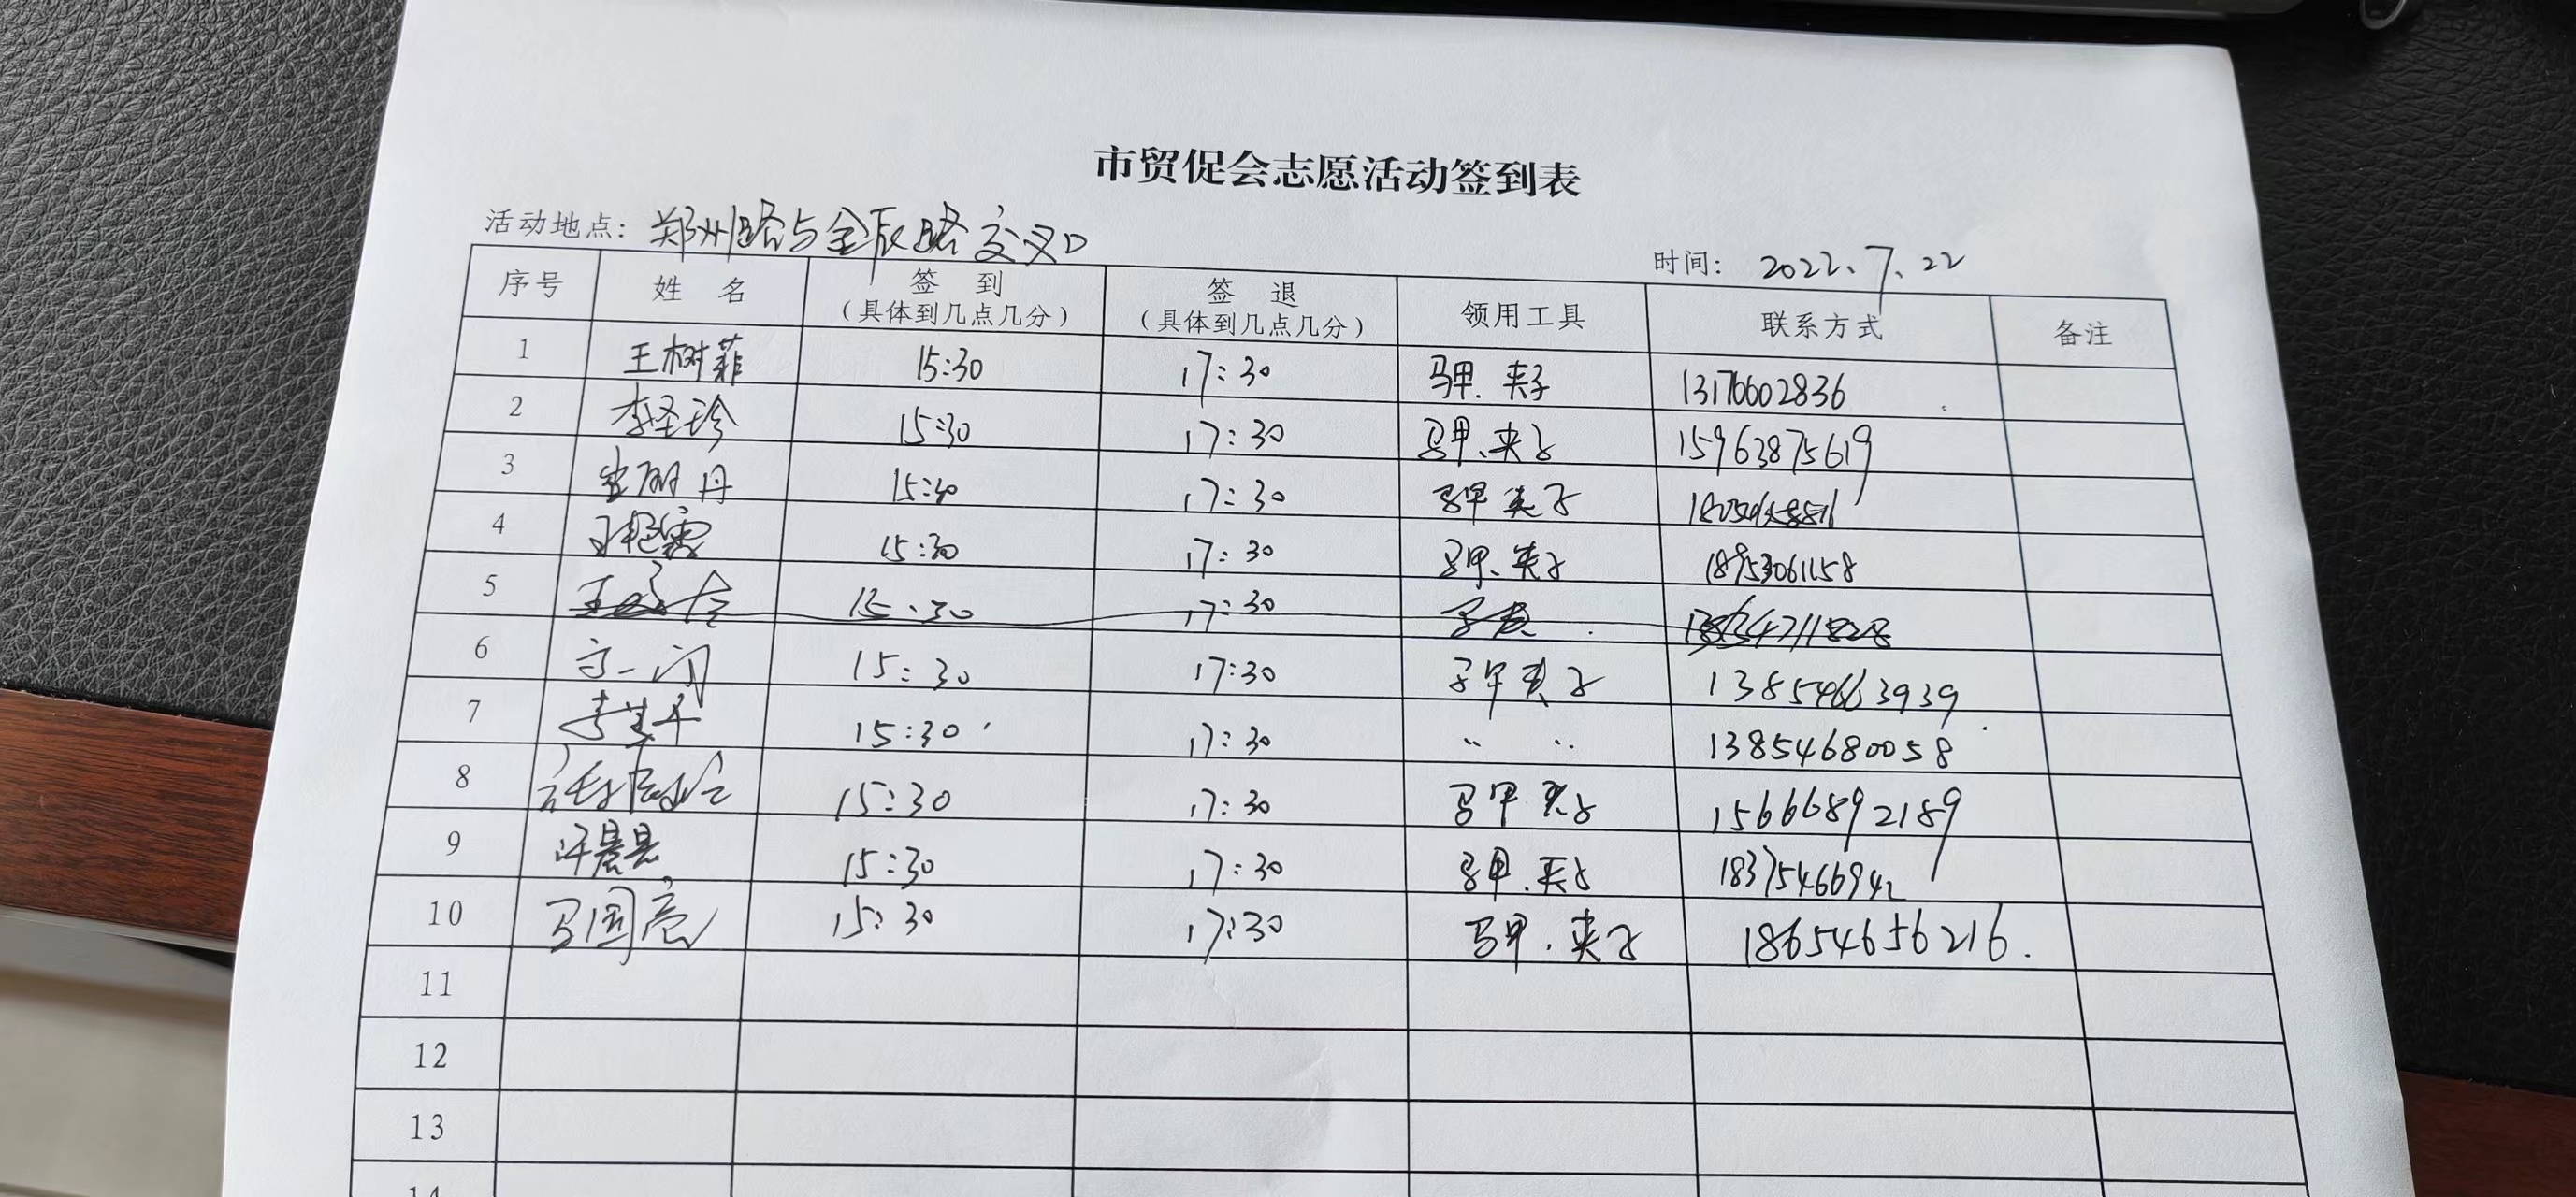 市贸促会志愿活动签到表
活动地点：郑州路与金辰路交叉口
时间：2022、7、22
序号 姓 名 签 到 签 退 领用工具 联系方式 备注
（具体到几点几分） （具体到几点几分）
1 王树菲 15:30 17:30 马甲.夹子 13176602836
2 李圣珍 15:30 17:30 马甲.夹子 15963875619
3 丹 15:30 17:30 马甲 夹子
4 15:30 17:30 马甲、夹子 18953061158
5 15:30 17:30
6 15:30 17:30 马甲夹子 13854663939
7 李 15:30 17:30 〃 〃 13854680058
8 15:30 17:30 马甲 夹子 15666892189
9 许晨 15:30 17:30 马甲.夹子 18375466942
10 马国亮 15:30 17:30 马甲.夹子 18654656216.
11
12
13
14